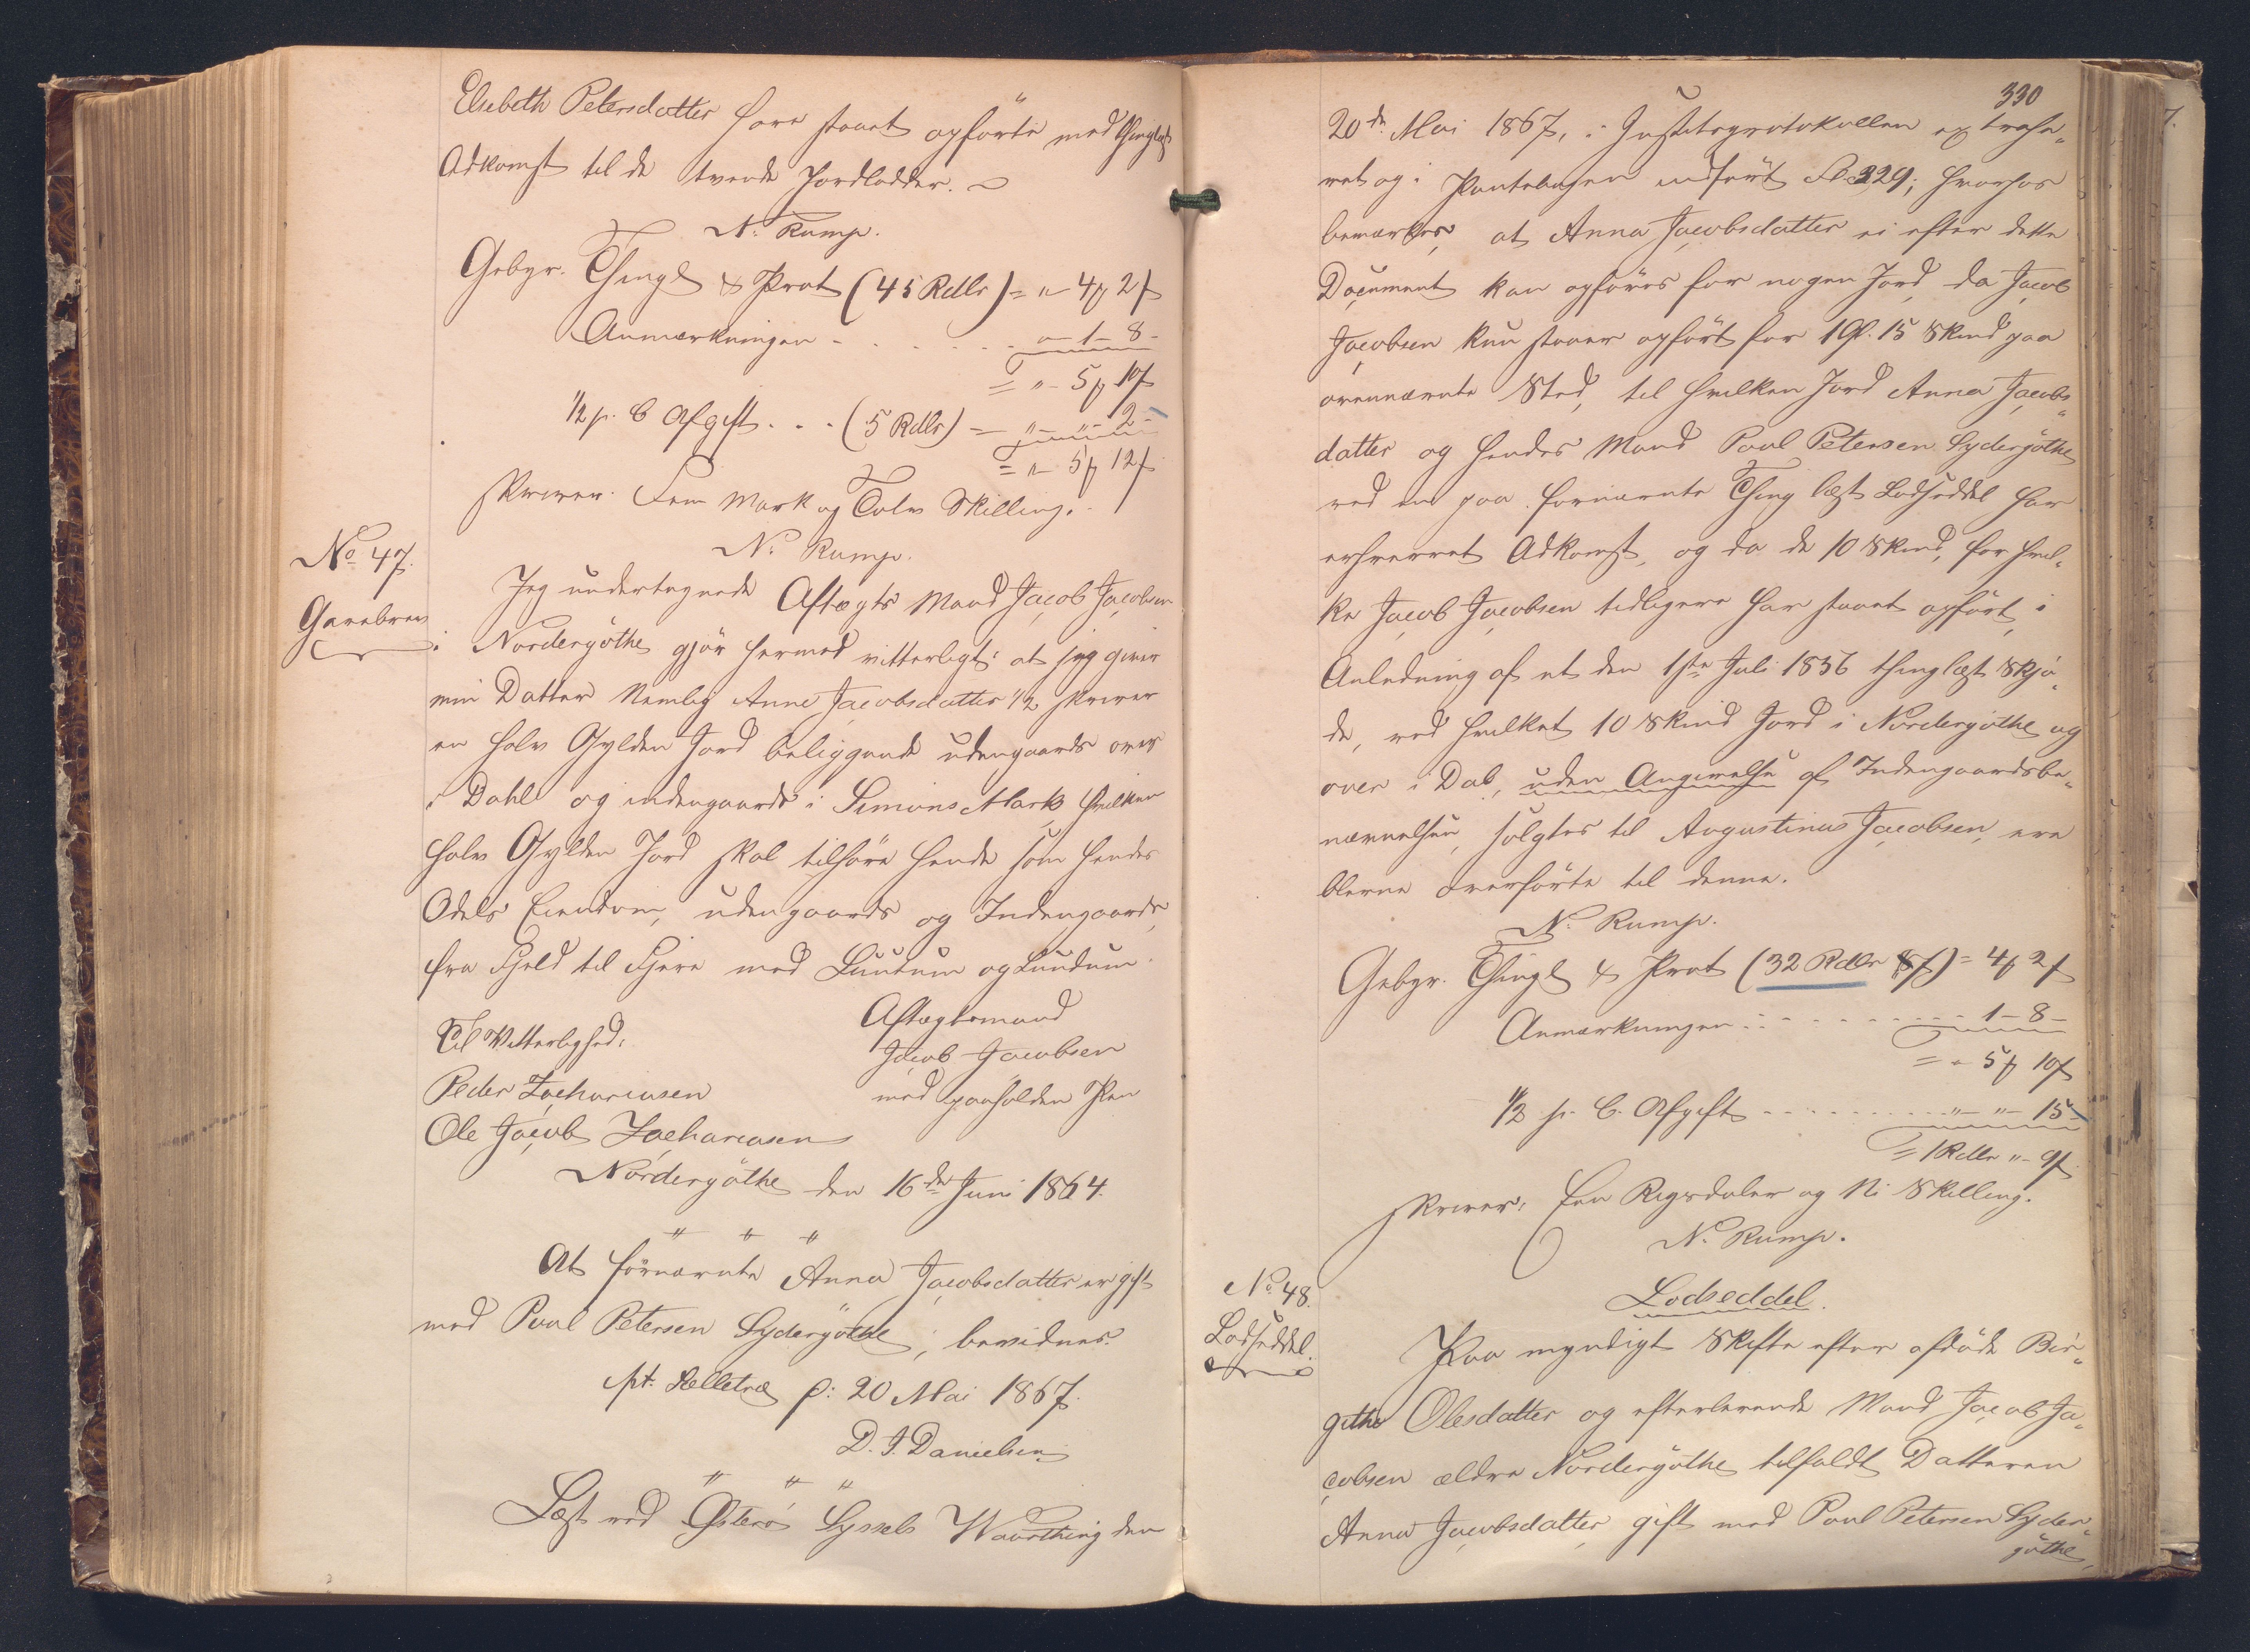 Elsebeth Petersdatter have staaet opførte med thinglyst
Adkomst til de tvende Jordlodder. —
N. Rump.
Gebyr. Thingl & Prot (45 Rdlr) = "– 4 ₥ 2 β
Anmærkningen - . . . . . . "– 1 – 8 –
= "– 5 ₥ 10 β
1/2 p. C Afgift . . . (5 Rdlr) = "– "– 2 –
= "– 5 ₥ 12 β
skriver Fem Mark og Tolv Skilling.
N. Rump.
No 47.
Gavebrev
Jeg undertegnede Aftægts Mand Jacob Jacobsen
i Nordergöthe gjör hermed vitterligt: at jeg giver
min Datter Nemlig Anne Jacobsdatter 1/2 skriver
en halv Gylden Jord beliggende udengaards over
i Dahl og indengaards i Simons Mark, hvilken
halv Gylden Jord skal tilhöre hende som hendes
Odels Eiendom, udengaards og Indengaards,
fra Fjeld til Fjære med Luntum og Lundum.
Til Vitterlighed: Aftægtsmand
Jacob Jacobsen
Peder Zachariasen med paaholden Pen
Ole Jacob Zachariasen
Nordergöthe den 16de Juni 1864.
" " "
At fornævnte Anna Jacobsdatter er gift
med Poul Petersen Sydergöthe, bevidnes.
pt. Selletræ p: 20 Mai 1867.
D. J. Danielsen
" " "
Læst ved Österö Syssels Vaarthing den
330
20de Mai 1867, i Justitsprotokollen extrahe-
ret og i Pantebogen indført Fol. 329; hvorhos
bemærkes, at Anna Jacobsdatter ei efter dette
Document kan opføres for nogen Jord, da Jacob
Jacobsen kun staaer opført for 1 Gl. 15 Skind paa
ovennævnte Sted, til hvilken Jord Anna Jacobs-
datter og hendes Mand Poul Petersen Sydergöthe
ved en paa fornævnte Thing læst Lodseddel har
erhvervet Adkomst, og da de 10 Skind, for hvil-
ke Jacob Jacobsen tidligere har staaet opført, i
Anledning af et den 1ste Juli 1856 thinglæst Skjö-
de, ved hvilket 10 Skind Jord i Nordergöthe og
over i Dal, uden Angivelse af Indengaardsbe-
nævnelsen, solgtes til Augustinus Jacobsen, ere
blevne overførte til denne.
N. Rump.
Gebyr. Thingl & Prot (32 Rdlr 8 β) = 4 ₥ 2 β
Anmærkningen . . . . . . 1 – 8 –
= " 5 ₥ 10 β
1/2 p. C. Afgift . . . . . . "– "– 15
= 1 Rdlr "– 9 β
skriver: Een Rigsdaler og Ni Skilling.
N. Rump.
No. 48.
Lodseddel.
Lodseddel.
Paa myndigt Skifte efter afdöde Bir-
githe Olesdatter og efterlevende Mand Jacob Ja-
cobsen ældre Nordergöthe tilfaldt Datteren
Anna Jacobsdatter, gift med Poul Petersen Syder-
göthe,